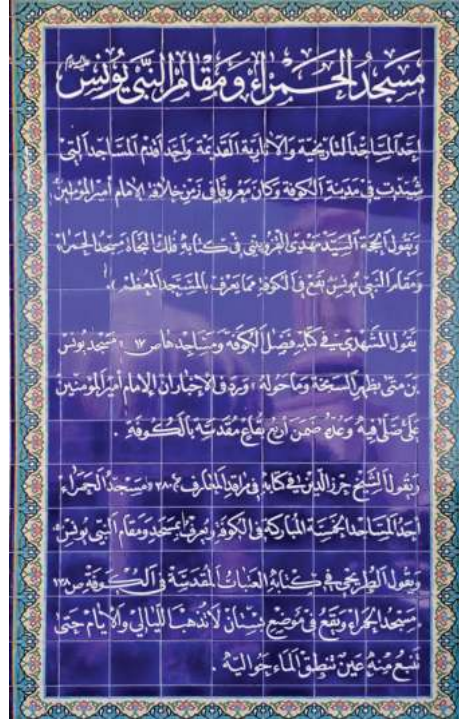 مسجد الحمراء ومقام النبي يونس
احد المساجد التاريخية والآثارية القديمة واحد اقدم المساجد التي
شيدت في مدينة الكوفة وكان معروفا في زمن خلافة الامام أمير المؤمنين
ويقول الحجة السيد مهدي القزويني في كتابه فلك النجاة مسجد الحمراء
ومقام النبي يونس يقع في الكوفة مما يعرف بالمسجد المعظم
يقول المشهدي في كتابه فضل الكوفة ومساجدها ص ١٧ « مسجد يونس
بن متى بظهر السبخة وماحوله » ورد في الاخبار ان الإمام أمير المؤمنين
علي صلى فيه وعده ضمن أربع بقاع مقدسة بالكوفة .
ويقول الشيخ حرز الدين في كتابه في مراقد المعارف ٢٨٠ « مسجد الحمراء
احد المساجد الخمسة المباركة في الكوفة ويعرف بمسجد ومقام النبي يونس »
ويقول الطريحي في كتابه العتبات المقدسة في الكوفة ص ١٣٨
مسجد الحمراء ويقع في موضع بستان لا تذهب الليالي والأيام حتى
تنبع منه عين تنطق الماء حواليه .